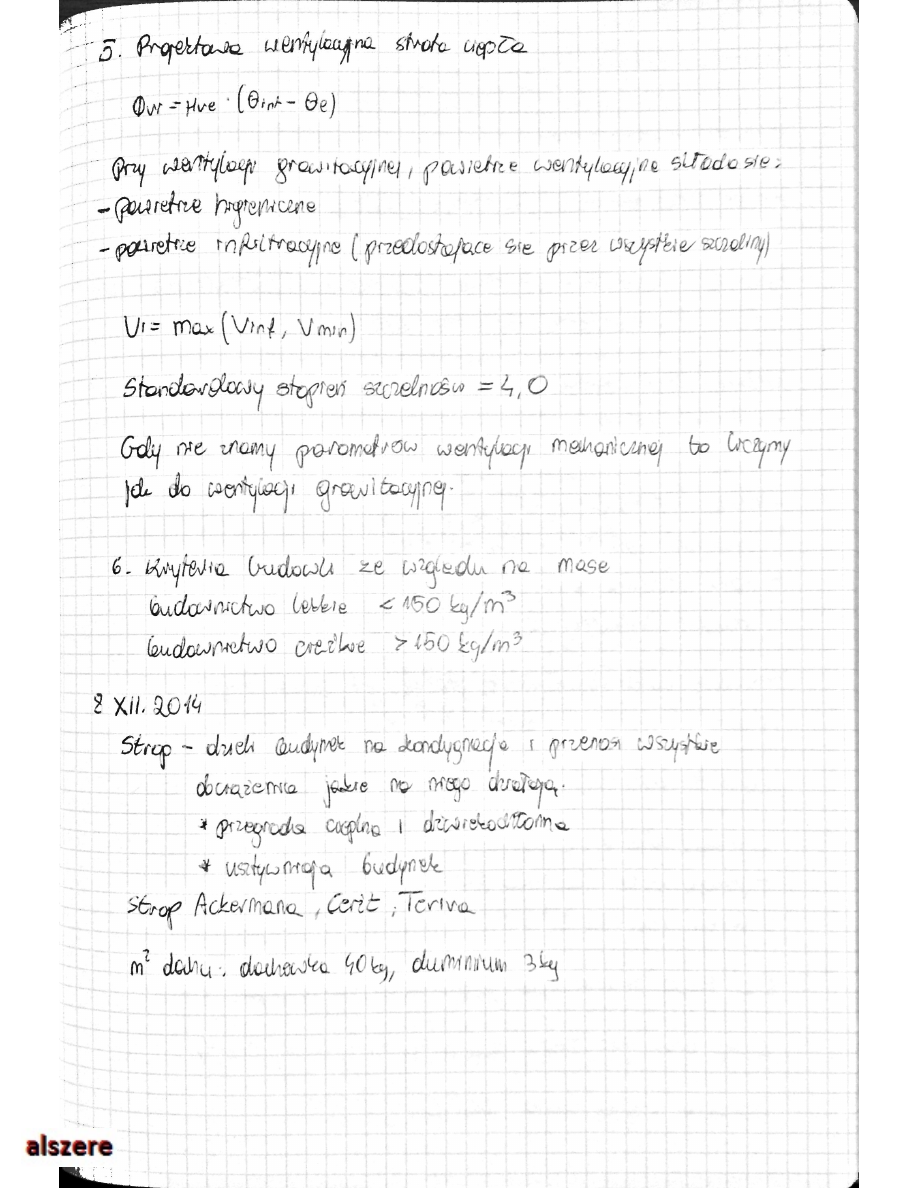 5. Projektowa wentylacyjna strata ciepła
Φvi = Hve · (Θint - Θe)
Przy wentylacji grawitacyjnej, powietrze wentylacyjne składa sie:
- powietrze higieniczne
- powietrze infiltracyjne (przedostające sie przez wszystkie szczeliny)
Vi = max (Vinf, Vmin)
Standardowy stopień szczelności = 4,0
Gdy nie znamy parametrów wentylacji mechanicznej to liczymy
jak do wentylacji grawitacyjnej.
6. Kryteria budowli ze względu na mase
budownictwo lekkie < 150 kg/m³
budownictwo cieżkie > 150 kg/m³
8 XII. 2014
Strop - dzieli budynek na kondygnacje i przenosi wszystkie
obciążenia jakie na niego działają.
* przegroda cieplna i dźwiekochłonna
* usztywniają budynek
Strop Ackermana, Cerit, Teriva
m² dachu: dachówka 40 kg, aluminium 3 kg
alszere